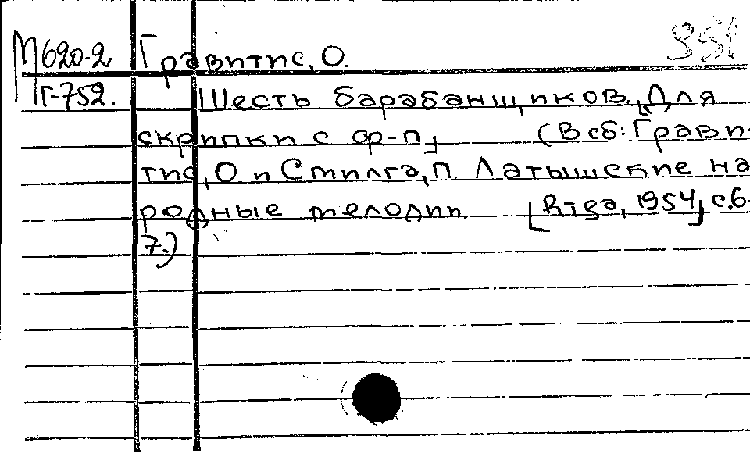 М620-2 Гравитис, О. 351
Г-752. Шесть барабанщиков. [Для
скрипки с ф-п] (В сб: Грави-
тис, О и Стилга, П. Латышские на-
родные мелодии. [Rīga, 1954] с.6-
7.)